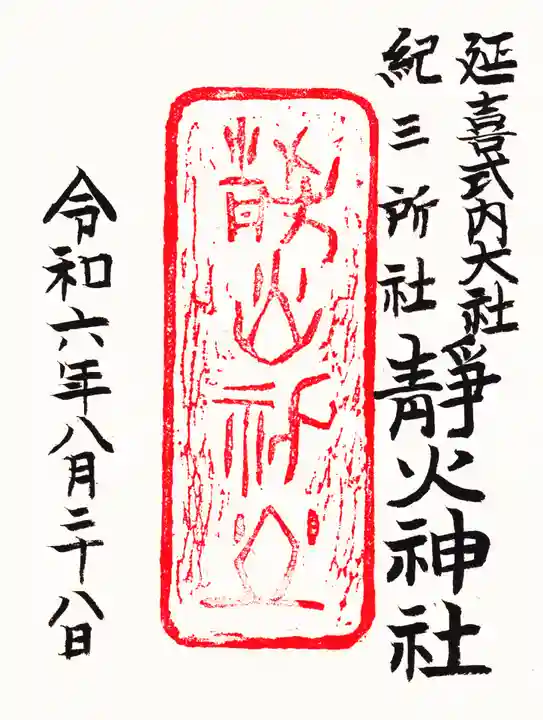 延喜式内大社
紀三所社
靜火神社
令和六年八月二十八日